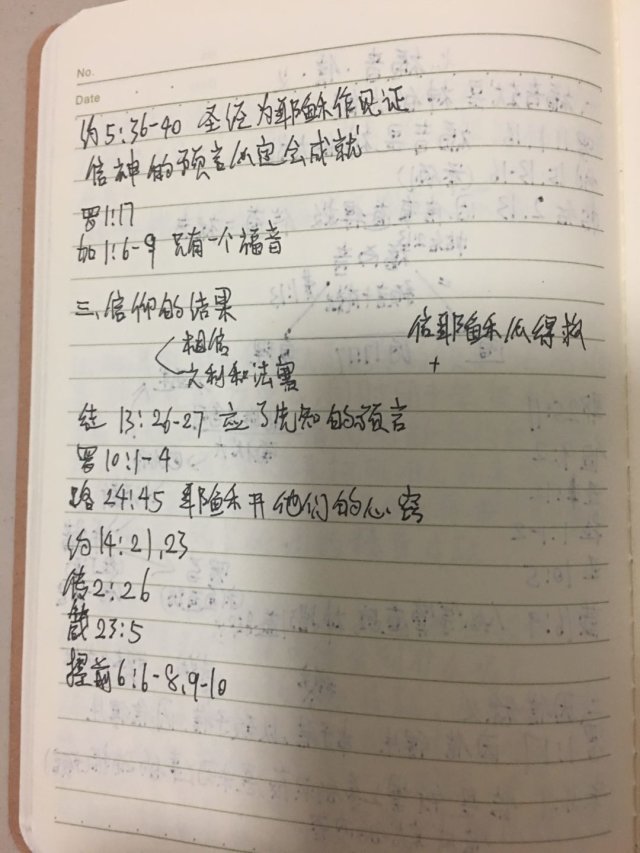 No.
Date
约5:36-40 圣经为耶稣作见证
信神的预言必定会成就
罗1:17
加1:6-9 只有一个福音
三、信仰的结果
相信
和法
信耶稣必得救
+
徒 13:26-27 应了先知的预言
罗10:1-4
路24:45 耶稣开他们的心窍
约14:21,23
传2:26
箴23:5
提前6:6-8,9-10